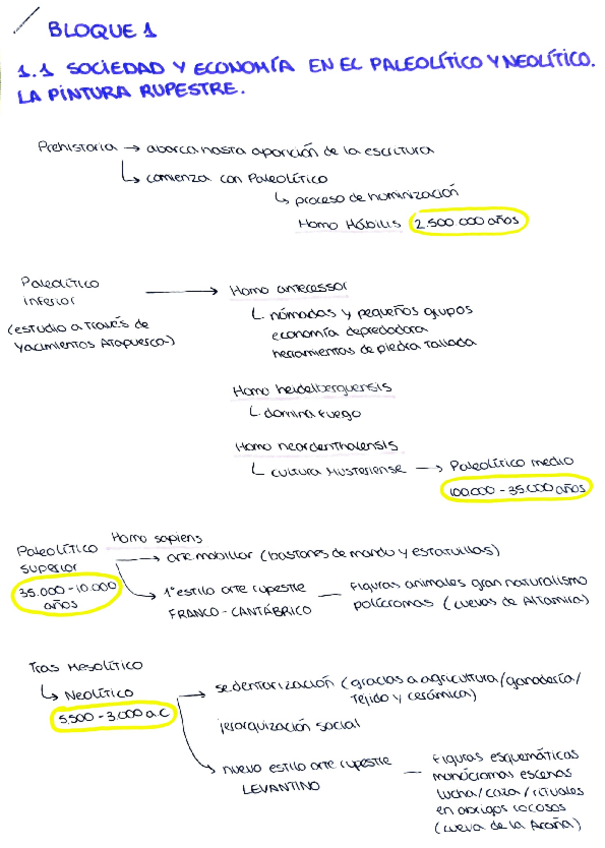 BLOQUE 1
1.1 SOCIEDAD Y ECONOMÍA EN EL PALEOLÍTICO Y NEOLÍTICO.
LA PINTURA RUPESTRE.
Prehistoria → abarca hasta aparición de la escritura
↳ comienza con Paleolítico
↳ proceso de hominización
Homo Hábilis 2.500.000 años
Paleolítico
inferior
(estudio a través de
Yacimientos Atapuesca)
→ Homo antecessor
↳ nómadas y pequeños grupos
economía depredadora
herramientas de piedra tallada
Homo heidelberguensis
↳ domina fuego
Homo neardenthalensis
↳ cultura Musteriense → Paleolítico medio
100.000 - 35.000 años
Paleolítico
superior
35.000 - 10.000
años
Homo sapiens
→ arte mobiliar (bastones de mando y estatuillas)
→ 1º estilo arte rupestre
FRANCO - CANTÁBRICO
— Figuras animales gran naturalismo
polícromas (cuevas de Altamira)
Tras Mesolítico
↳ Neolítico
5.500 - 3.000 a.C
→ sedentarización (gracias a agricultura/ganadería/
Tejido y cerámica)
jerarquización social
→ nuevo estilo arte rupestre
LEVANTINO
— Figuras esquemáticas
monócromas escenas
lucha/caza/rituales
en abrigos rocosos
(cueva de la Araña)